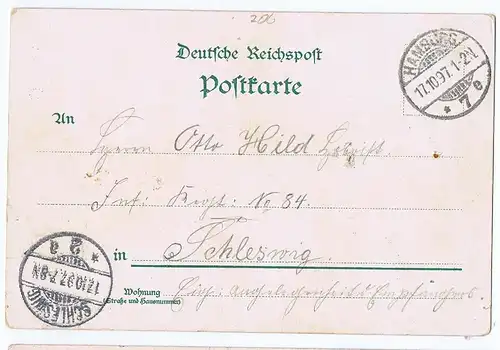 206
Deutsche Reichspost
Postkarte
HAMBURG
17.10.97. 1-2N.
* 7 e
An
Herrn Otto Hild
Inf. Regt. No 84.
in Schleswig.
SCHLESWIG
17.10.97. 7-8N.
* 2 a
Wohnung
(Straße und Hausnummer)
Eig. Angelegenheit d. Empfängers